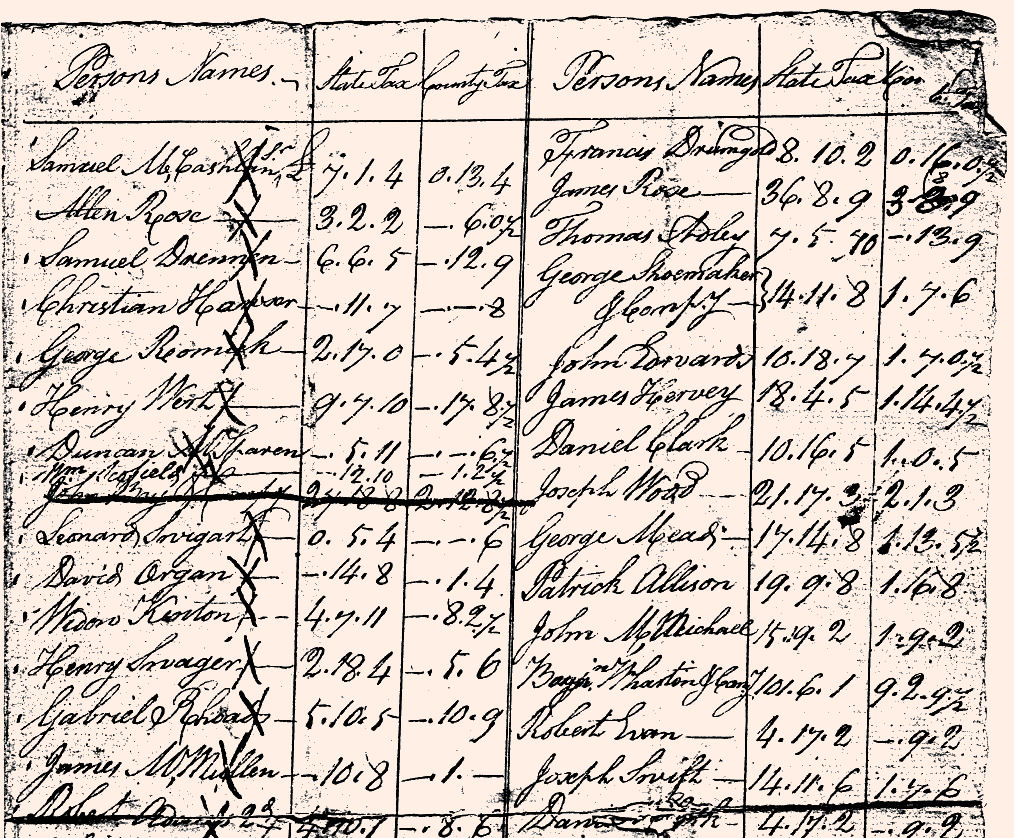 Persons Names. State Tax County Tax
Samuel McCashlin, Sr. £ 7.1.4 0.13.4
Allen Rose 3.2.2 —.6.0½
Samuel Drennen 6.6.5 —.12.9
Christian —.11.7 —.—.8
George 2.17.0 —.5.4½
Henry Wertz 9.7.10 —.17.8½
Duncan —.5.11 —.—.6½
Wm. Scofield —.12.10 —.1.2½
John 27.18.8 2.12.8½
Leonard Swigart 0.5.4 —.—.6
David Organ —.14.8 —.1.4
Widow Kinton 4.7.11 —.8.2½
Henry Swager 2.18.4 —.5.6
Gabriel Rhoads 5.10.5 —.10.9
James McMullen —.10.8 —.1.—
Robert 2d —.8.6
Persons Names State Tax Tax
Francis Drumgold 8.10.2 0.16.0½
James Rose 36.8.9
Thomas 7.5.10 —.13.9
George Shoemaker
& Compy 14.11.8 1.7.6
John Edwards 10.18.7 1.7.0½
James Hervey 18.4.5 1.14.4½
Daniel Clark 10.16.5 1.0.5
Joseph Wood 21.17.3 2.1.3
George Mead 17.14.8 1.13.5½
Patrick Allison 19.9.8 1.16.8
John McMichael 15.9.2 1.9.2
Wharton & Comy 101.6.1 9.2.9½
Robert Evan 4.17.2 —.9.2
Joseph Swift 14.11.6 1.7.6
4.17.2 —.9.2